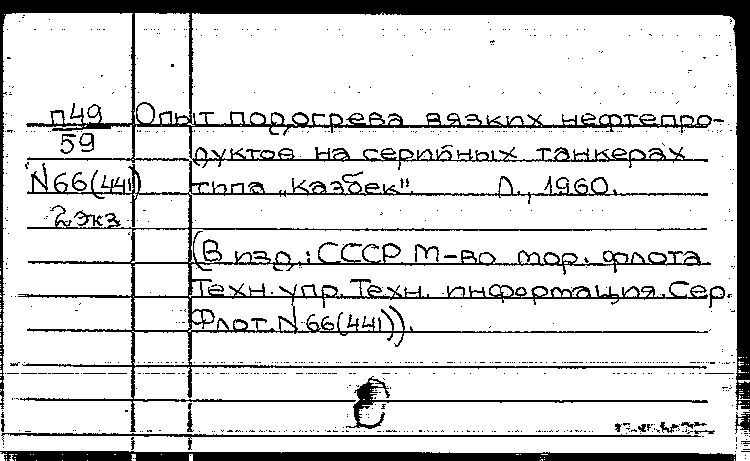 п49
59
N66(441)
2 экз
Опыт подогрева вязких нефтепро-
дуктов на серийных танкерах
типа „Казбек". Л., 1960.
(В изд.: СССР М-во мор. флота
Техн. упр. Техн. информация. Сер.
Флот. N 66(441)).